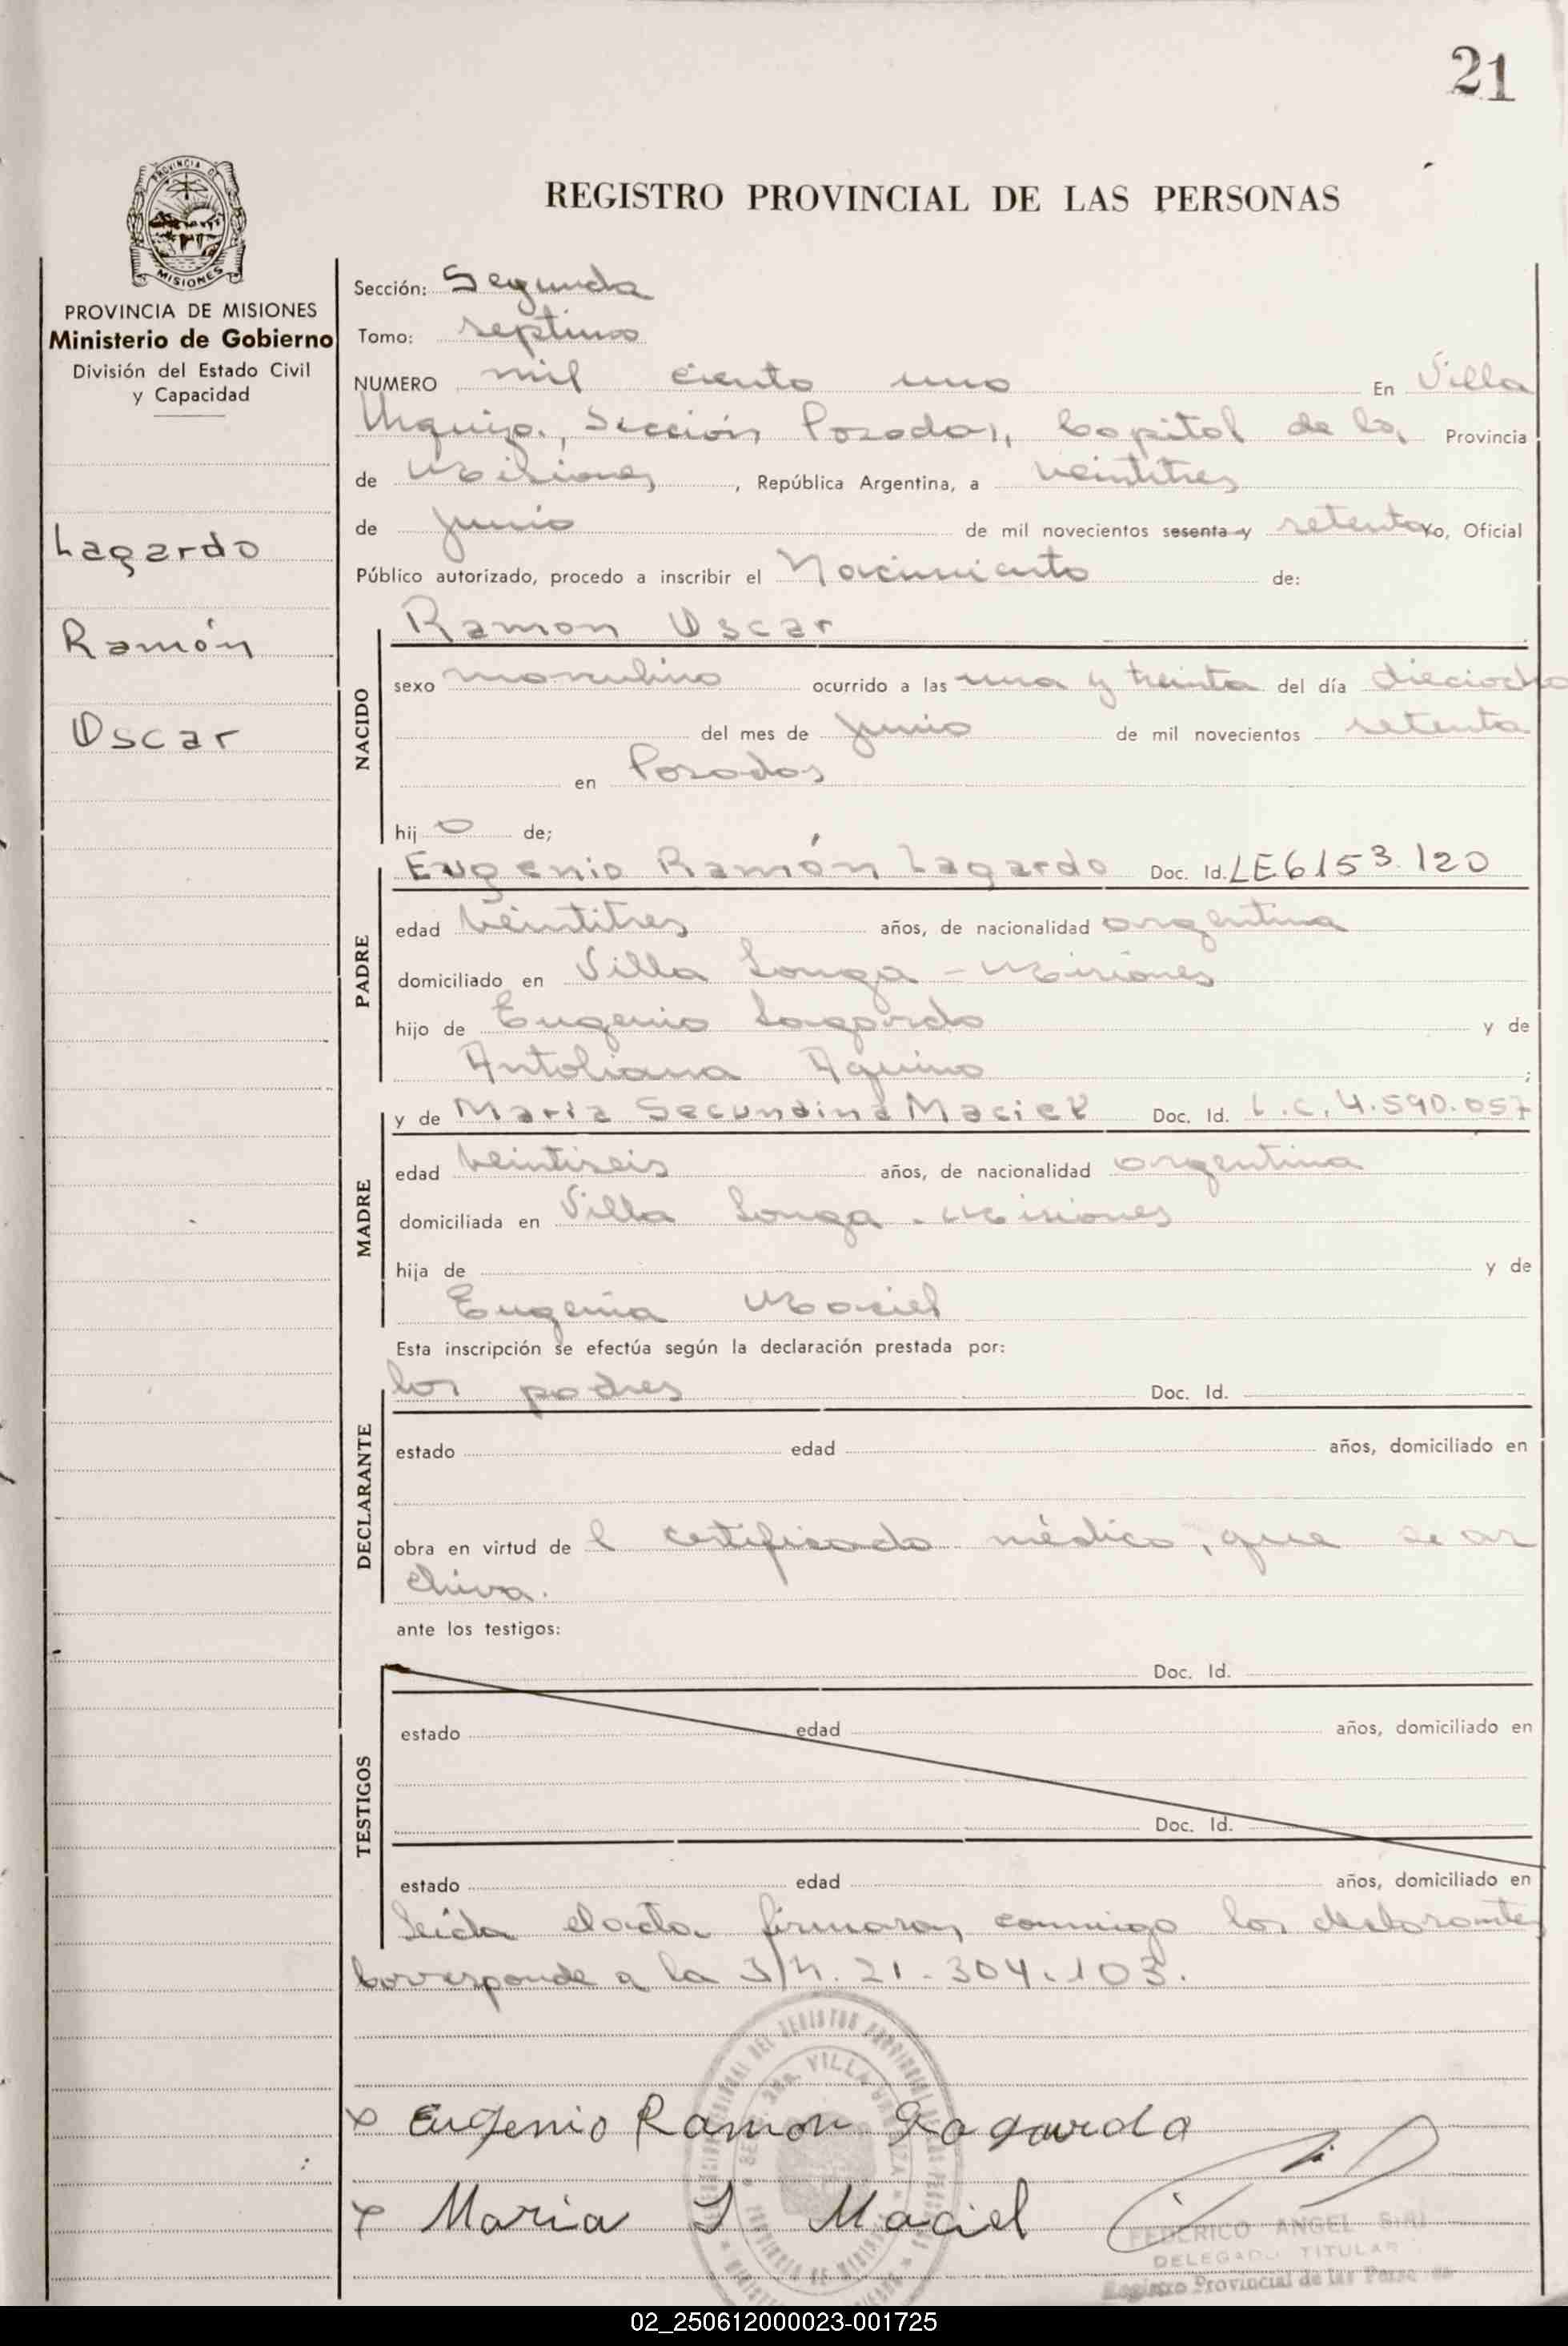 21
PROVINCIA DE
MISIONES
REGISTRO PROVINCIAL DE LAS PERSONAS
PROVINCIA DE MISIONES
Ministerio de Gobierno
División del Estado Civil
y Capacidad
Lagardo
Ramón
Oscar
Sección: Segunda
Tomo: septimo
NUMERO mil ciento uno En Villa
Urquiza, Sección Posadas, Capital de la, Provincia
de Misiones, República Argentina, a veintitres
de Junio de mil novecientos sesenta y setenta Yo, Oficial
Público autorizado, procedo a inscribir el Nacimiento de:
NACIDO
Ramon Oscar
sexo masculino ocurrido a las una y treinta del día dieciocho
del mes de Junio de mil novecientos setenta
en Posadas
hij o de;
PADRE
Eugenio Ramón Lagardo Doc. Id. LE6153.120
edad veintitres años, de nacionalidad argentina
domiciliado en Villa Longa - Misiones
hijo de Eugenio Lagardo y de
Antoliana Aquino ;
MADRE
y de Maria Secundina Maciel Doc. Id. L.C. 4.590.057
edad veintiseis años, de nacionalidad argentina
domiciliada en Villa Longa - Misiones
hija de y de
Eugenia Maciel
Esta inscripción se efectúa según la declaración prestada por:
DECLARANTE
los padres Doc. Id.
estado edad años, domiciliado en
obra en virtud de l certificado médico, que se ar
chiva.
ante los testigos:
TESTIGOS
Doc. Id.
estado edad años, domiciliado en
Doc. Id.
estado edad años, domiciliado en
Leída el acta, firmaron conmigo los declarantes
Corresponde a la 3/M. 21-304.103.
x Eugenio Ramon Lagardo
x Maria S Maciel
FEDERICO ANGEL
DELEGADO TITULAR
Registro Provincial de las Personas
02_250612000023-001725